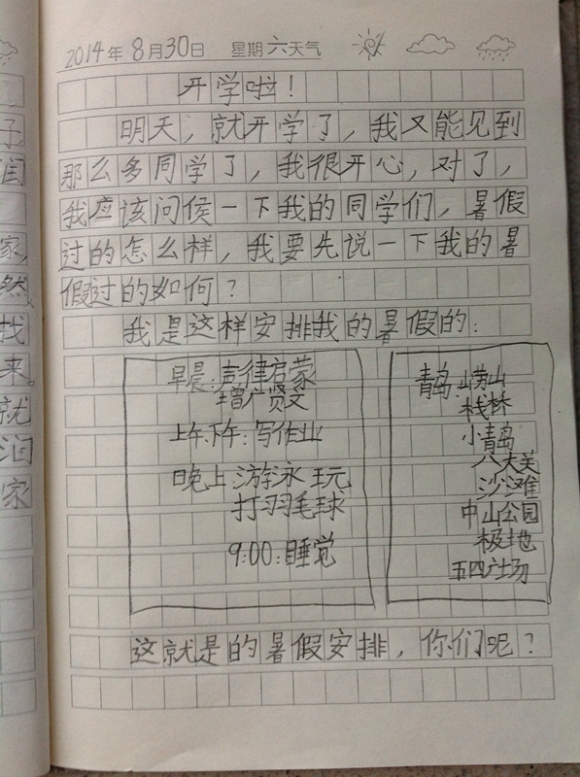 2014年8月30日 星期六天气
开学啦！
明天，就开学了，我又能见到
那么多同学了，我很开心，对了，
我应该问侯一下我的同学们，暑假
过的怎么样，我要先说一下我的暑
假过的如何？
我是这样安排我的暑假的：
早晨：声律启蒙
增广贤文
上午.下午：写作业
晚上：游泳 玩
打羽毛球
9:00：睡觉
青岛：崂山
栈桥
小青岛
八大关
沙滩
中山公园
极地
五四广场
这就是的暑假安排，你们呢？
子
闰
家，
然，
找
来。
就
汩
家